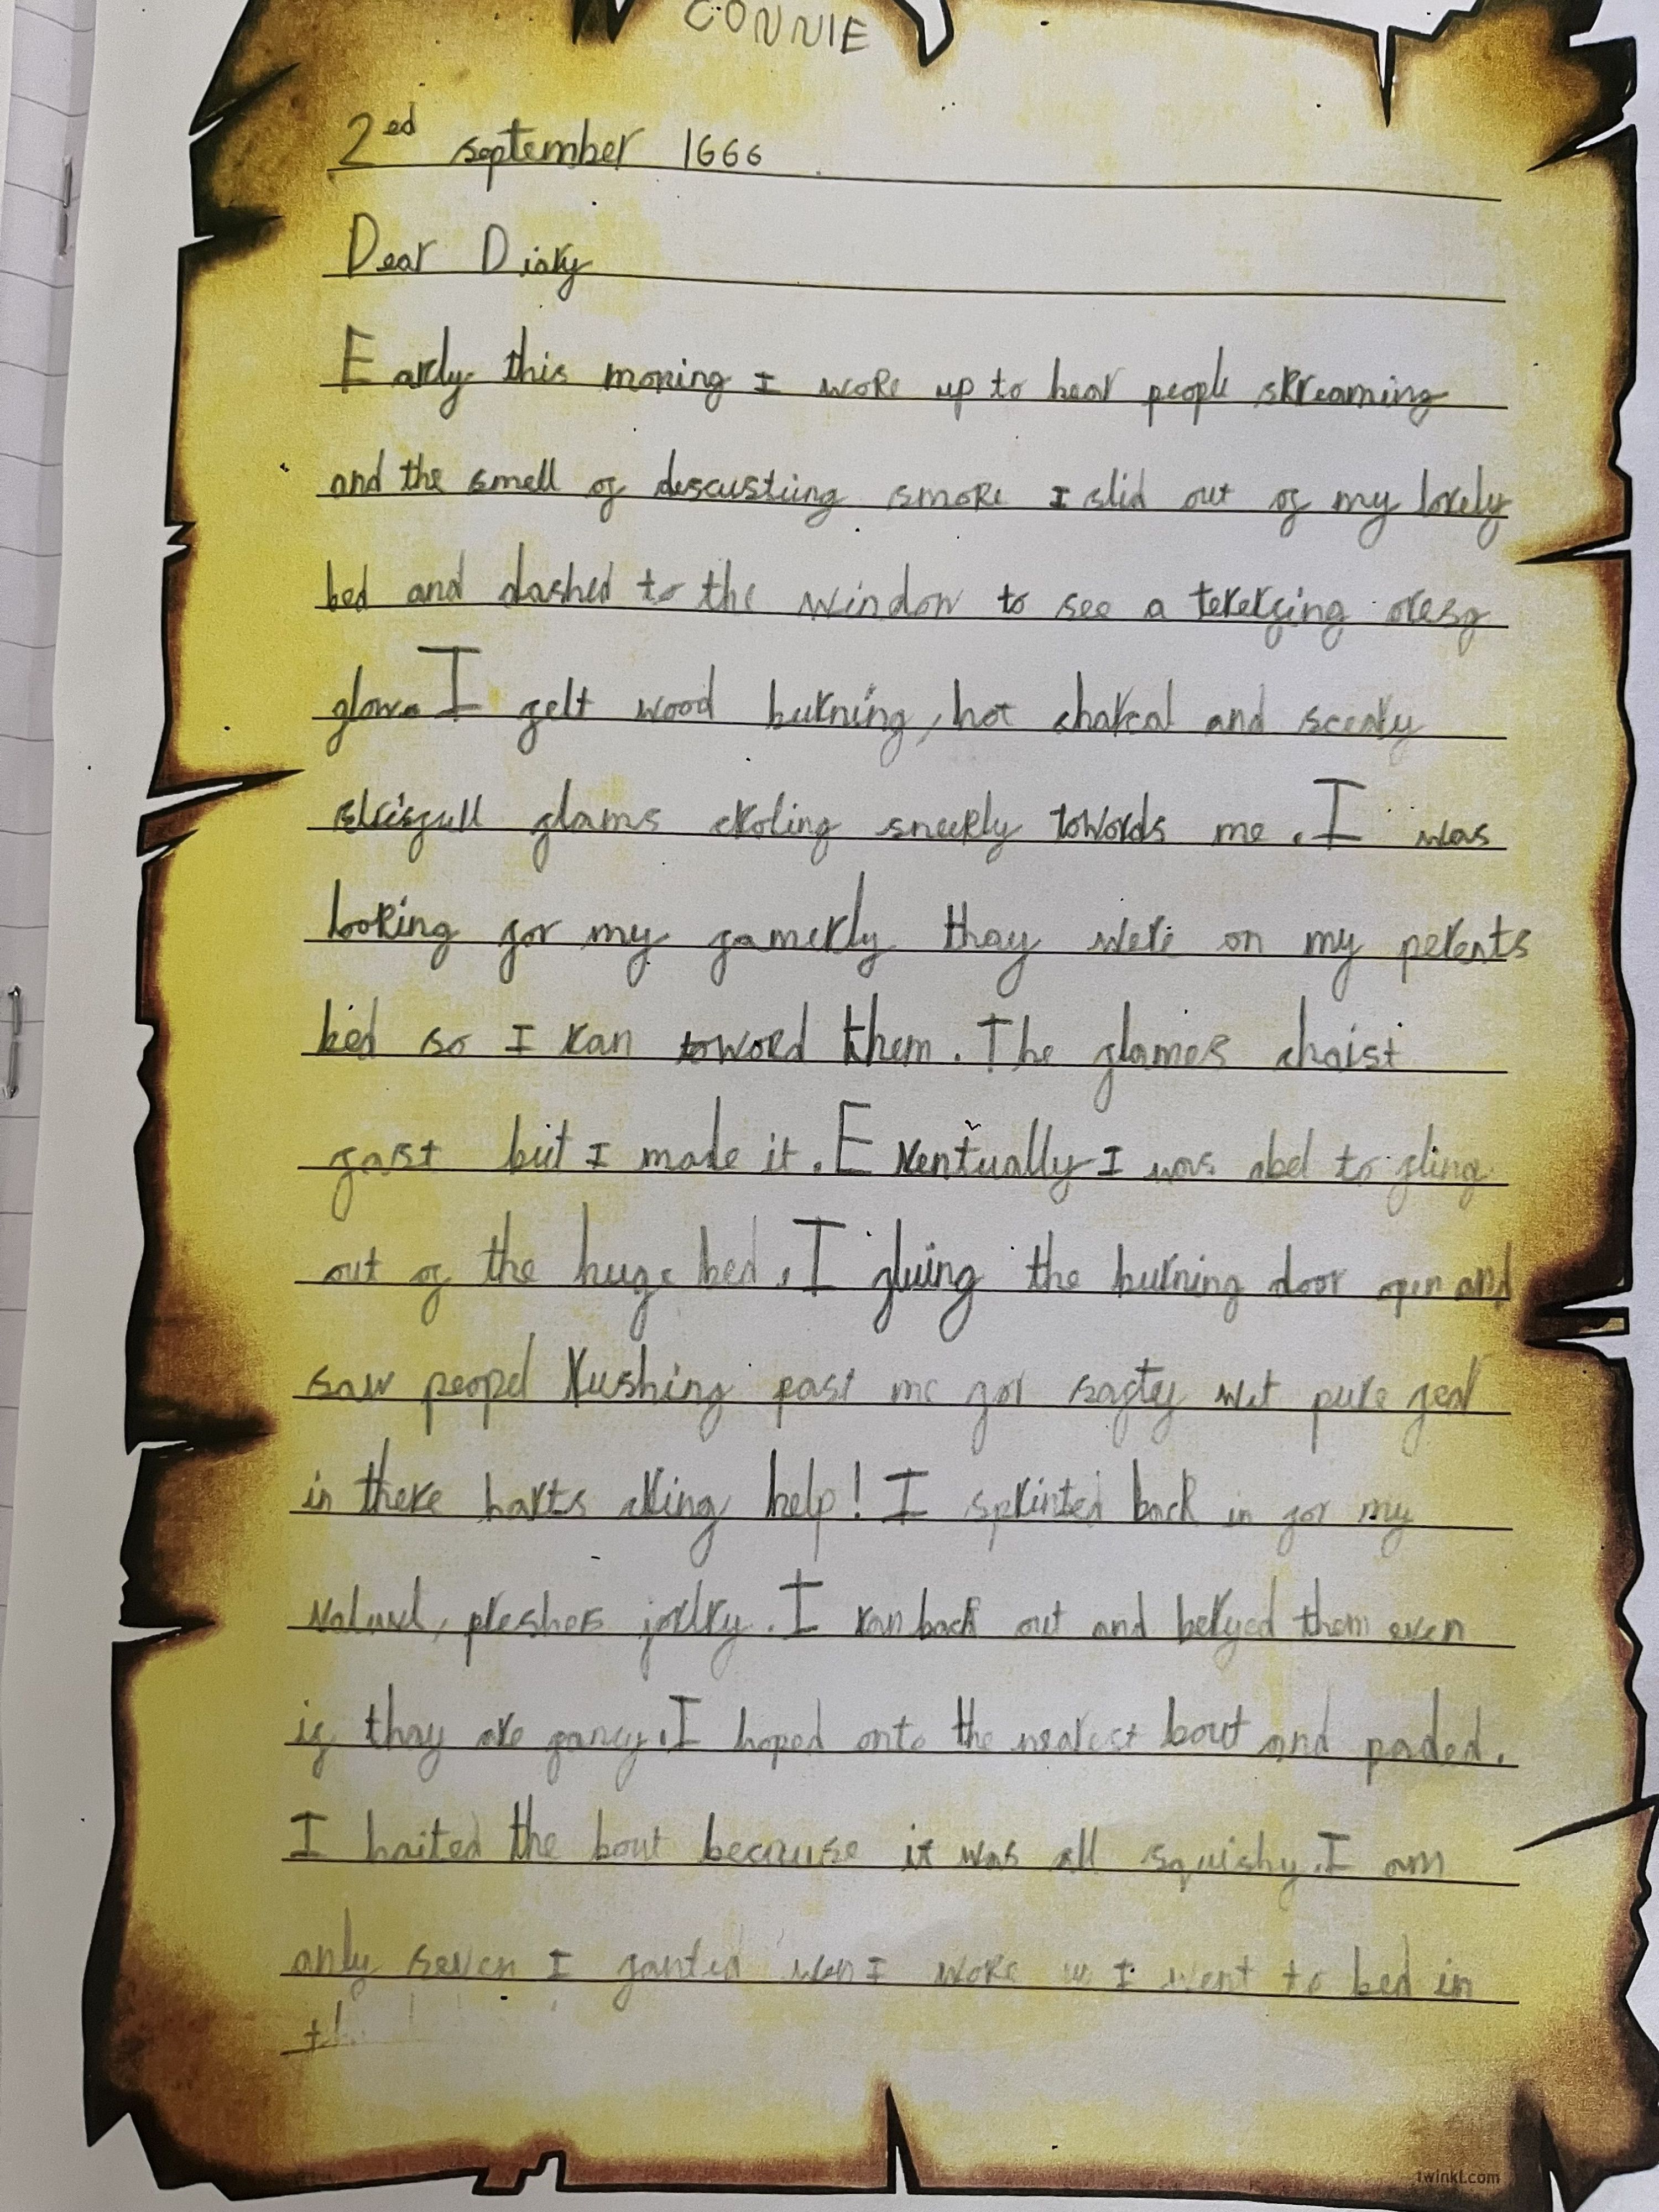 CONNIE
2ed september 1666
Dear Diary
Early this moning I woke up to hear people skreaming
and the smell of descusting smoke I slid out of my lovely
bed and dashed to the window to see a terefing
glow. I felt wood burning, hot charcal and sceary
flams croling sneekly towords me. I was
looking for my famerly thay were on my perents
bed so I ran toword them. The flames chaist
fast but I made it. Eventually I was abel to fling
out of the huge bed. I fluing the burning door open and
saw peopel rushing past me for safty wit pure fear
in there harts cking help! I sprinted back in for my
preshes jorlry. I ran back out and beryed them even
if thay are fancy. I hoped onto the nearest bout and paded.
I haited the bout because it was all squishy. I am
only seven I fanted wen I woke I went to bed in
twinkl.com